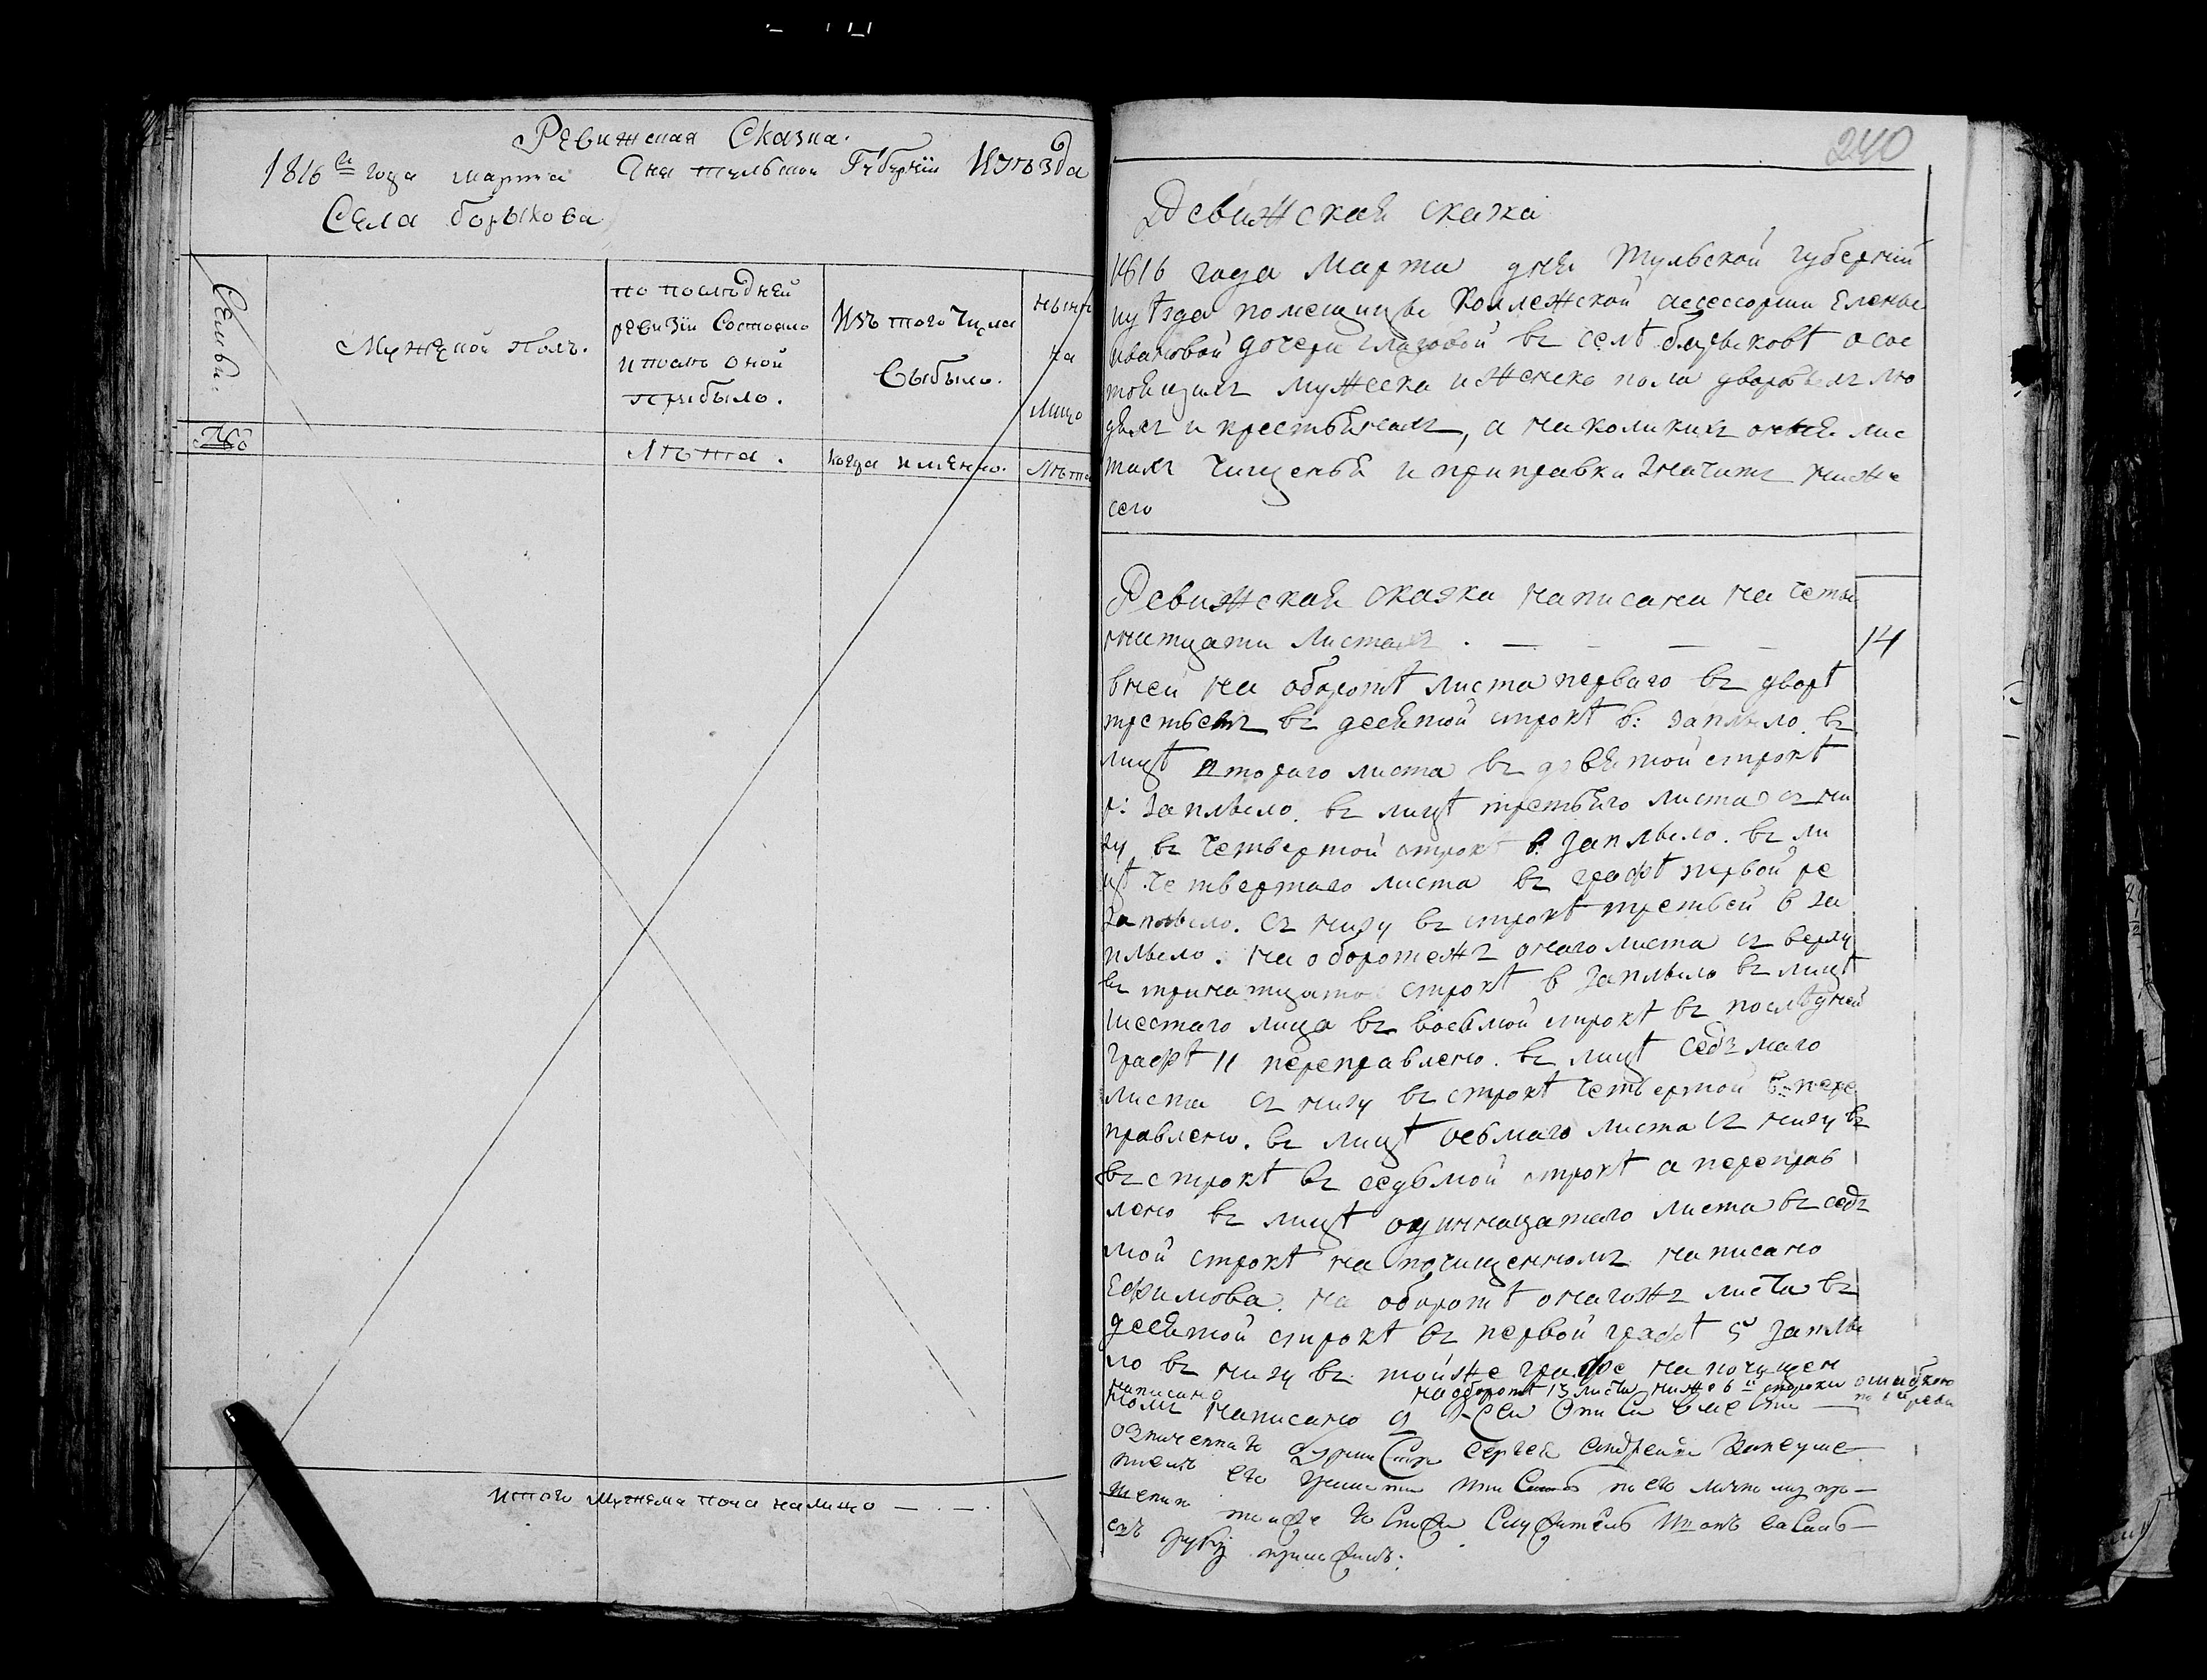 Ревижская Сказка.
1816го года марта Дня тульской Губернiи Иуъзда
Села борыкова
Семьи.
Мужеской полъ.
по послѣдней
ревизiи Состояло
и послѣ оной
прибыло.
Изъ того Числа
Выбыло.
нынѣ
на
лицо
№
Лѣта.
когда имянно.
Лѣта
итого мужеска пола налицо — . — .
240
Ревижская сказка
1816 года Марта дня Тульской губернiи
уѣзда помещицы Коллежской асессорши Елены
ивановой дочери в селѣ о сос
тоящихъ мужеска и женска пола дворовыхъ лю
дяхъ и крестьянахъ, а на коликихъ оныя лис
тахъ чищенья и приправки значитъ ниже
сего
Ревижская сказка написана на четы
рнатцати листахъ . — - — - 14
вней на оборотѣ листа перваго въ дворѣ
третьемъ въ десятой строкѣ в: заплыло. въ
лицѣ втораго листа въ девятой строкѣ
р: заплыло. въ лицѣ третьяго листа съ ни
зу въ четвертой строкѣ в: заплыло. въ ли
цѣ четвертаго листа въ графѣ первой ре
заплыло. съ низу въ строкѣ третьей в за
плыло. на оборотежъ онаго листа съ верху
въ тринатцатой строкѣ в заплыло въ лицѣ
шестаго лица въ восьмой строкѣ въ послѣдней
графѣ 11 переправлено. въ лицѣ седъмаго
листа съ низу въ строкѣ четвертой в: пере
правлено. въ лицѣ осьмаго листа съ низу въ
въ строкѣ въ седьмой строкѣ а переправ
лено въ лицѣ одиннацатаго листа въ седъ
мой строкѣ на почищенномъ написано
Ефимова. на оборотѣ онагожъ листа въ
десятой строкѣ въ первой графѣ 5 заплы
ло въ низу въ тойже графе на почищен
написано на оборотѣ 13 листа ниже 6й строки ошибкою
номъ написано
Сергея Андреева
его по его личному про—
шенiю
руку приложилъ: